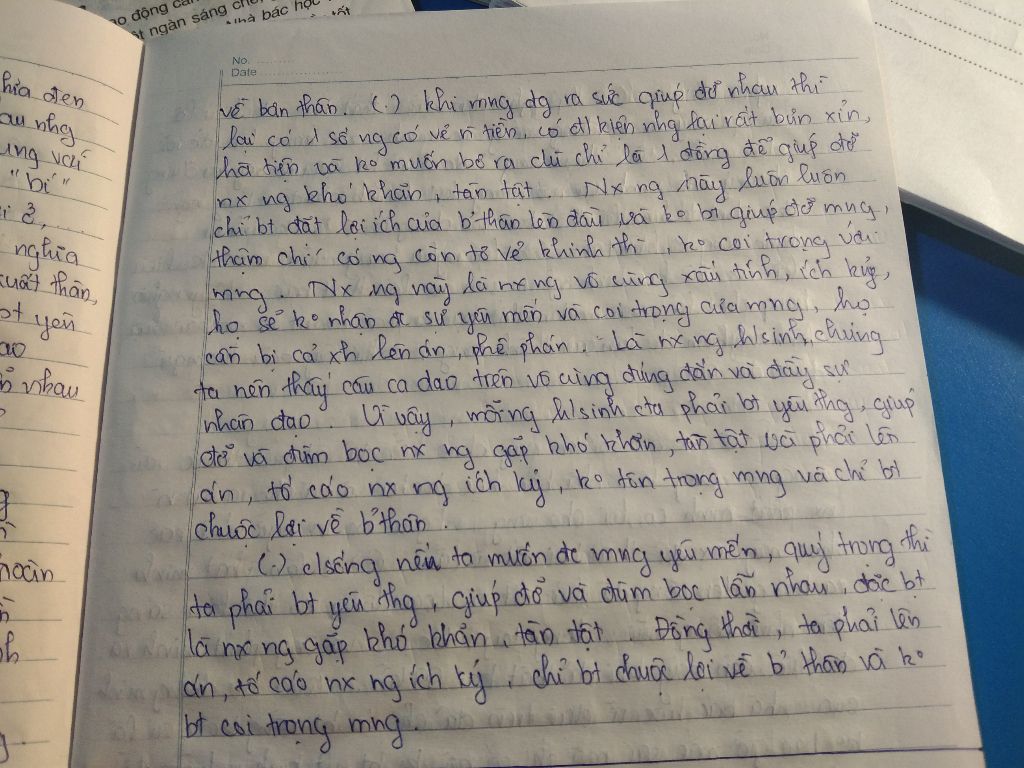 ao động cần
ột ngàn sáng chế
Nhà bác học
No.
Date
hĩa đen
au nhg
ùng với
"bí"
nghĩa
xuất thân,
ot yêu
ao
nhau
hoàn
về bản thân. (.) khi mng đg ra sức giúp đỡ nhau thì
lại có 1 số ng có vẻ n tiền, có đ/kiện nhg lại rất bủn xỉn,
hà tiện và ko muốn bỏ ra dù chỉ là 1 đồng để giúp đỡ
nx ng khó khăn, tàn tật. Nx ng này luôn luôn
chỉ bt đặt lợi ích của b'thân lên đầu và ko bt giúp đỡ mng,
thậm chí có ng còn tỏ vẻ khinh thì, ko coi trọng với
mng. Nx ng này là nx ng vô cùng xấu tính, ích kỷ,
họ sẽ ko nhận đc sự yêu mến và coi trọng của mng, họ
cần bị cả xh lên án, phê phán. Là nx ng h/sinh, chúng
ta nên thấy câu ca dao trên vô cùng đúng đắn và đầy sự
nhân đạo. Vì vậy, mỗi ng h/sinh cta phải bt yêu thg, giúp
đỡ và đùm bọc nx ng gặp khó khăn, tàn tật và phải lên
án, tố cáo nx ng ích kỷ, ko tôn trọng mng và chỉ bt
chuộc lợi về b'thân.
(.) c/sống nếu ta muốn đc mng yêu mến, quý trọng thì
ta phải bt yêu thg, giúp đỡ và đùm bọc lẫn nhau, đặc bt
là nx ng gặp khó khăn, tàn tật Đồng thời, ta phải lên
án, tố cáo nx ng ích kỷ, chỉ bt chuộc lợi về b'thân và ko
bt coi trọng mng.